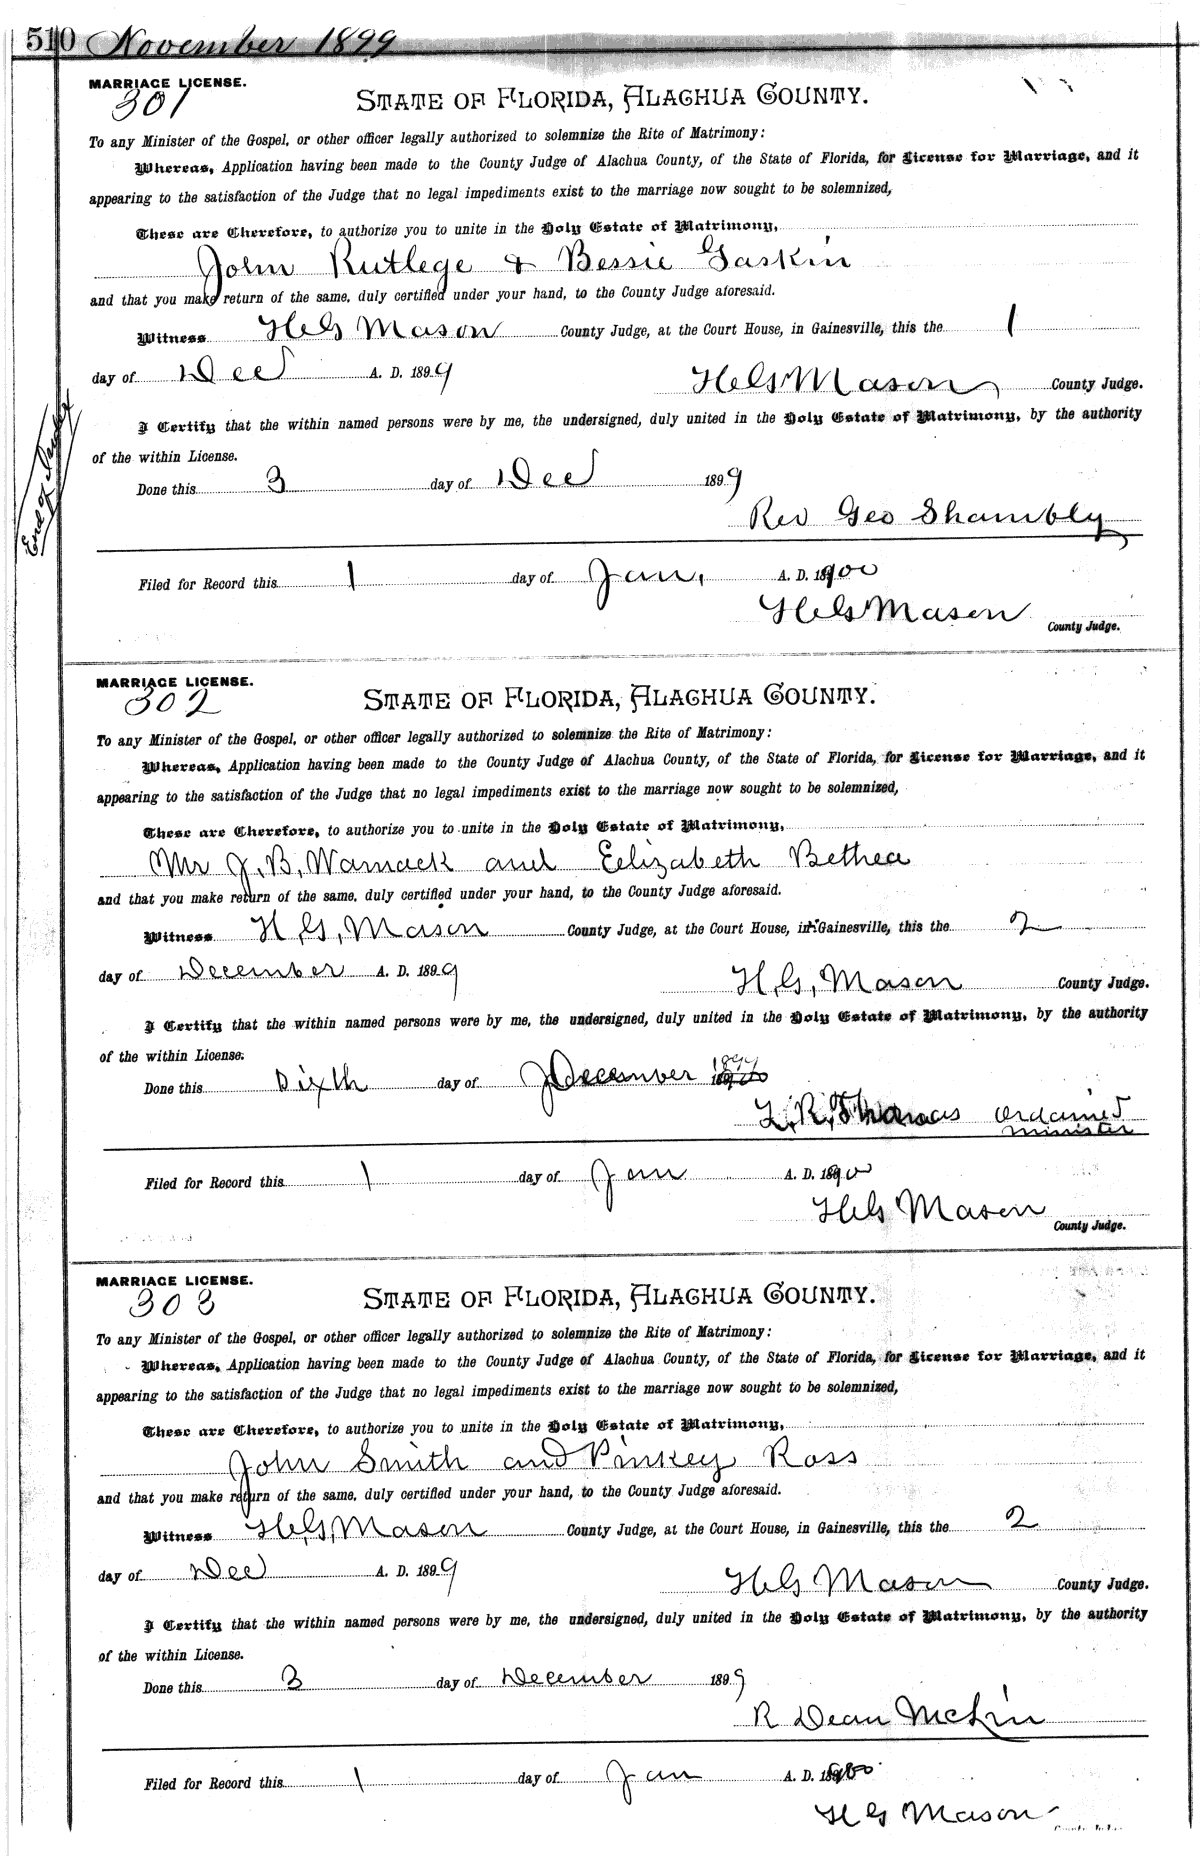 510 November 1899
MARRIAGE LICENSE.
301
STATE OF FLORIDA, ALACHUA COUNTY.
To any Minister of the Gospel, or other officer legally authorized to solemnize the Rite of Matrimony:
Whereas, Application having been made to the County Judge of Alachua County, of the State of Florida, for License for Marriage, and it
appearing to the satisfaction of the Judge that no legal impediments exist to the marriage now sought to be solemnized,
These are Therefore, to authorize you to unite in the Holy Estate of Matrimony,
John Rutlege & Bessie Gaskin
and that you make return of the same, duly certified under your hand, to the County Judge aforesaid.
Witness H G Mason County Judge, at the Court House, in Gainesville, this the 1
day of Dec A. D. 1899 H G Mason County Judge.
I Certify that the within named persons were by me, the undersigned, duly united in the Holy Estate of Matrimony, by the authority
of the within License.
End of Index
Done this 3 day of Dec 1899
Rev Geo Shambly
Filed for Record this 1 day of Jan, A. D. 1900
H G Mason
County Judge.
MARRIAGE LICENSE.
302
STATE OF FLORIDA, ALACHUA COUNTY.
To any Minister of the Gospel, or other officer legally authorized to solemnize the Rite of Matrimony:
Whereas, Application having been made to the County Judge of Alachua County, of the State of Florida, for License for Marriage, and it
appearing to the satisfaction of the Judge that no legal impediments exist to the marriage now sought to be solemnized,
These are Therefore, to authorize you to unite in the Holy Estate of Matrimony,
Mr J. B. Wamack and Eelizabeth Bethea
and that you make return of the same, duly certified under your hand, to the County Judge aforesaid.
Witness H, G, Mason County Judge, at the Court House, in Gainesville, this the 2
day of December A. D. 1899 H, G, Mason County Judge.
I Certify that the within named persons were by me, the undersigned, duly united in the Holy Estate of Matrimony, by the authority
of the within License.
Done this Sixth day of December 1899
L. R. Thomas ordained
minister
Filed for Record this 1 day of Jan A. D. 1900
H G Mason
County Judge.
MARRIAGE LICENSE.
303
STATE OF FLORIDA, ALACHUA COUNTY.
To any Minister of the Gospel, or other officer legally authorized to solemnize the Rite of Matrimony:
Whereas, Application having been made to the County Judge of Alachua County, of the State of Florida, for License for Marriage, and it
appearing to the satisfaction of the Judge that no legal impediments exist to the marriage now sought to be solemnized,
These are Therefore, to authorize you to unite in the Holy Estate of Matrimony,
John Smith and Pinkey Ross
and that you make return of the same, duly certified under your hand, to the County Judge aforesaid.
Witness H, G, Mason County Judge, at the Court House, in Gainesville, this the 2
day of Dec A. D. 1899 H G Mason County Judge.
I Certify that the within named persons were by me, the undersigned, duly united in the Holy Estate of Matrimony, by the authority
of the within License.
Done this 3 day of December 1899
R Dean McLin
Filed for Record this 1 day of Jan A. D. 1900
H G Mason
County Judge.